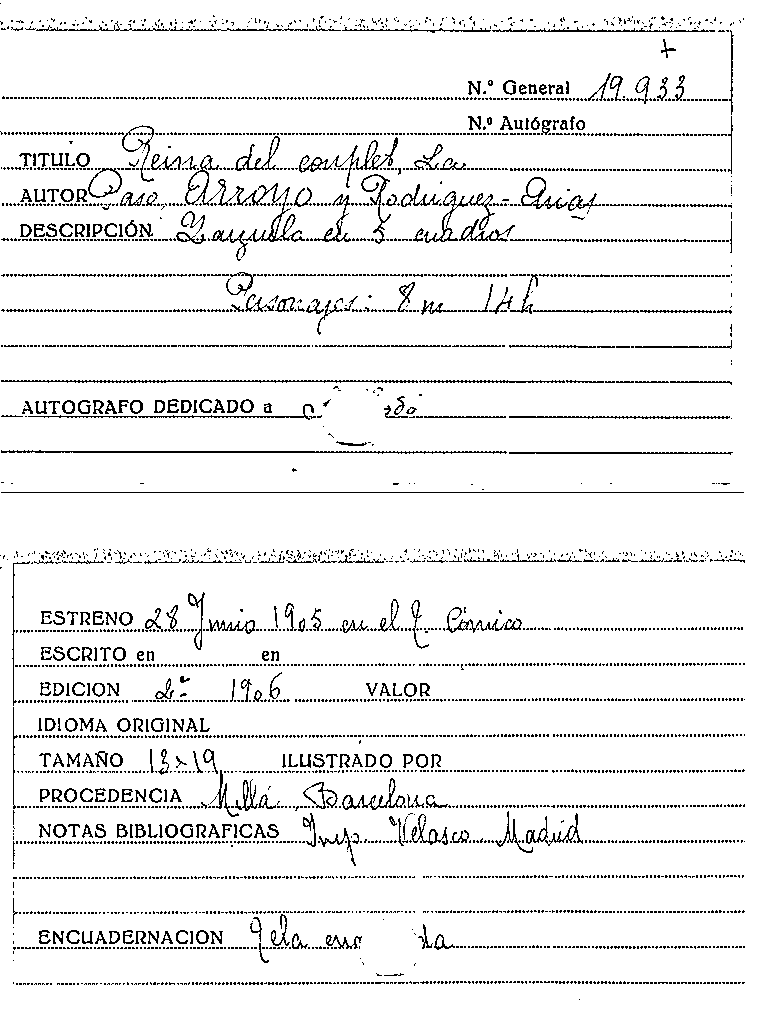 +
N.º General 19.933
N.º Autógrafo
TITULO Reina del couplet, La
AUTOR Paso, Arroyo y Rodriguez-Arias
DESCRIPCIÓN Zarzuela en 5 cuadros
Personajes: 8 m 14 h
AUTOGRAFO DEDICADO a
ESTRENO 28 Junio 1905 en el T. Cómico
ESCRITO en en
EDICION 2ª 1906 VALOR
IDIOMA ORIGINAL
TAMAÑO 13x19 ILUSTRADO POR
PROCEDENCIA Millá Barcelona
NOTAS BIBLIOGRAFICAS Imp. Velasco Madrid
ENCUADERNACION Tela